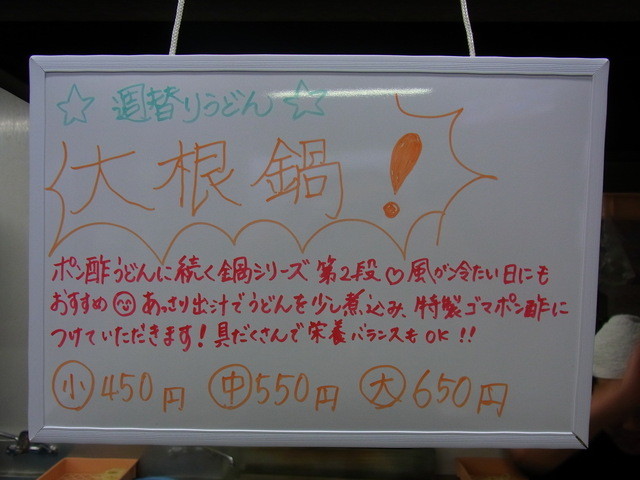 ☆ 週替りうどん ☆
大根鍋!
ポン酢うどんに続く鍋シリーズ 第2段♡風が冷たい日にも
おすすめ☺あっさり出汁でうどんを少し煮込み、特製ゴマポン酢に
つけていただきます!具だくさんで栄養バランスもOK!!
小450円 中550円 大650円